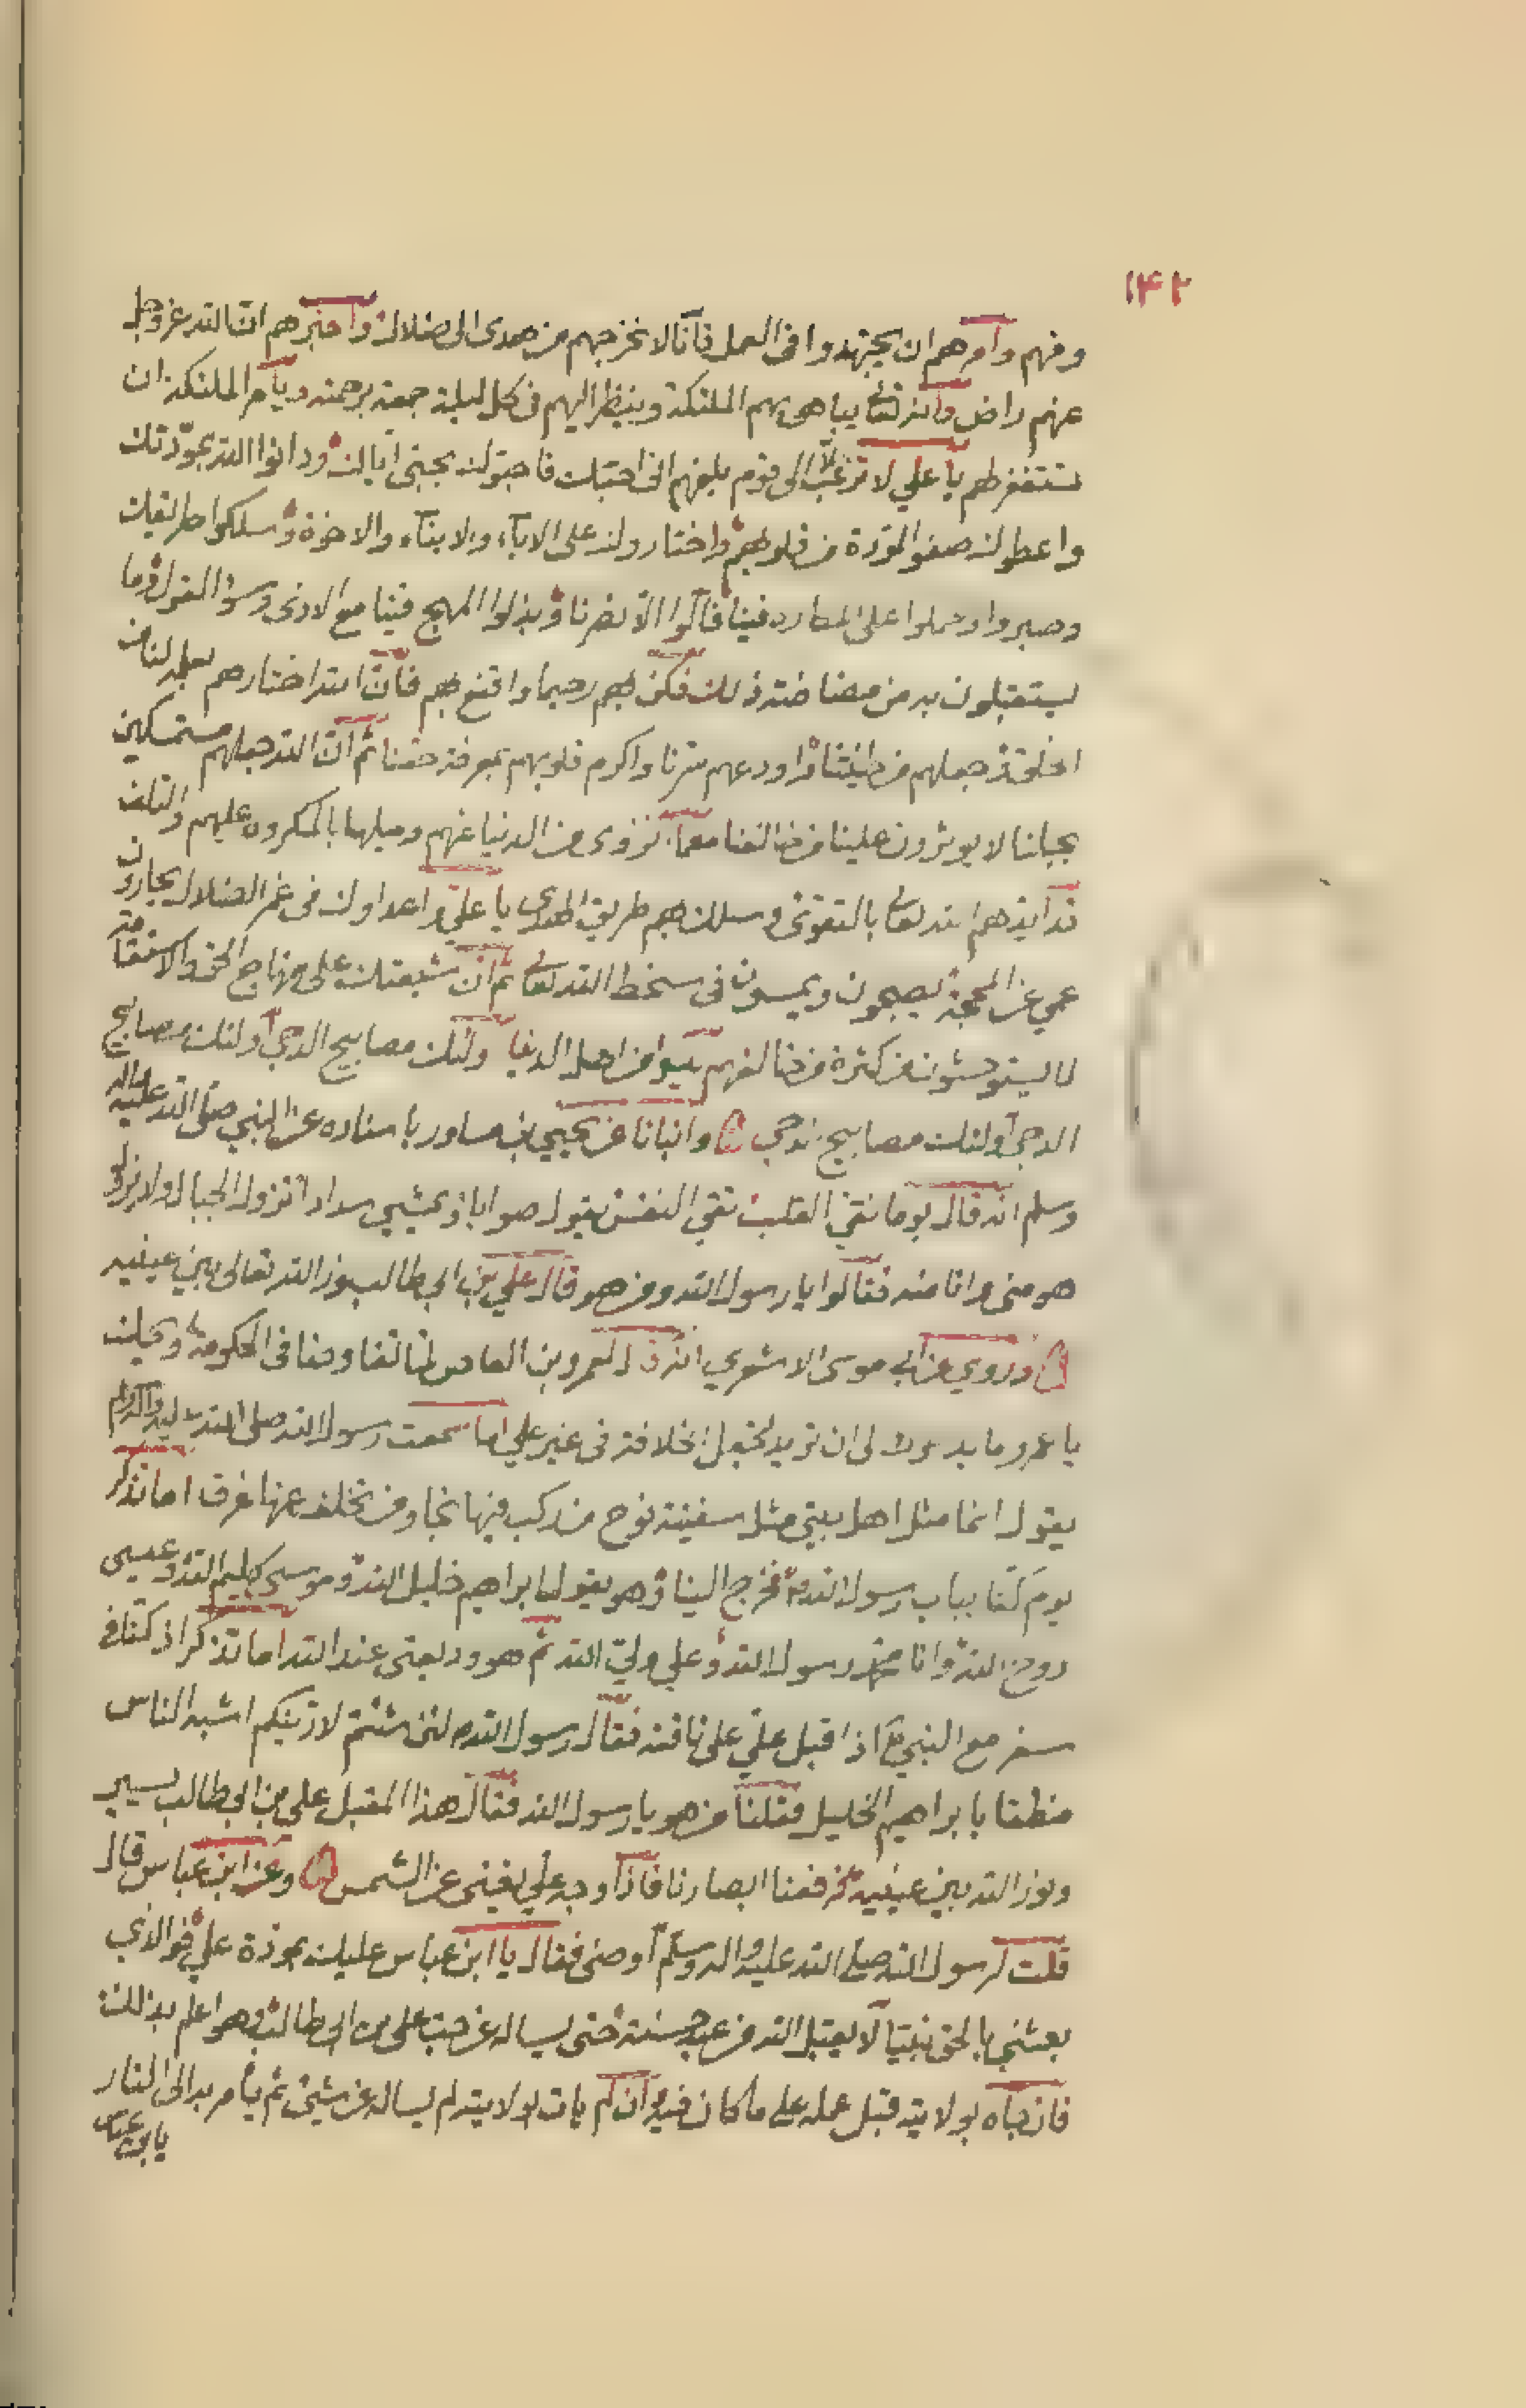 ١٤٢
وفهم وأمرهم ان يجتهدوا فى العمل فانا لا نخرجهم من هدى الى ضلالة وأخبرهم ان الله عز وجل
عنهم راض وانه تعالى يباهى بهم الملئكة وينظر اليهم فى كل ليلة جمعة برحمته ويأمر الملئكة ان
تستغفر لهم يا علي لا ترغب الى قوم بلغهم انى احببتك فاحبوك بحبى اياك ودانوا الله بمودتك
واعطوك صفو المودة من قلوبهم واختاروك على الاباء والابناء والاخوة وسلكوا طريقك
وصبروا وحملوا على المكاره فينا فأبوا الا نصرنا وبذلوا المهج فينا مع الاذى وسوء القول وما
يستقبلون به من مضاضة ذلك فكن بهم رحيما واقنع بهم فان الله اختارهم بعلمه لنا من
الخلق وجعلهم من طينتنا واودعهم سرنا واكرم قلوبهم بمعرفة حقنا ثم ان الله جعلهم مستمسكين
بحبلنا لا يوثرون علينا من خالفنا معما نزوى من الدنيا عنهم وميلها بالمكروه عليهم والتلف
قد ايدهم الله تعالى بالتقوى وسلك بهم طريق الهدى يا علي واعداوك فى غمر الضلال يحارون
عمي عن المحجة يصبحون ويمسون فى سخط الله تعالى ثم ان شيعتك على منهاج الحق والاستقامة
لا يستوحشون من كثرة من خالفهم ليسوا من اهل الدنيا اولئك مصابيح الدجى اولئك مصابيح
الدجى اولئك مصابيح الدجى وانبانا عن يحيي بن مساور باسناده عن النبي صلى الله عليه واله
وسلم انه قال يوما نقي القلب نقي النفس يقول صوابا ويمشي سدادا تزول الجبال ولا يزول
هو منى وانا منه فقالوا يا رسول الله ومن هو قال علي بن ابى طالب ونور الله تعالى بين عينيه
وروي عن ابى موسى الاشعري انه قال لعمرو بن العاص لما تفاوضا فى الحكومة ويحك
يا عمرو ما يدعوك الى ان تريد لتجعل الخلافة فى غير علي اما سمعت رسول الله صلى الله عليه واله وسلم
يقول انما مثل اهل بيتى مثل سفينة نوح من ركب فيها نجا ومن تخلف عنها غرق اما تذكر
يوم كنا بباب رسول الله فخرج الينا وهو يقول ابراهيم خليل الله وموسى كليم الله وعيسى
روح الله وانا محمد رسول الله وعلي ولي الله ثم هو وديعتى عند الله اما تذكر اذ كنا فى
سفر مع النبي اذ اقبل علي على ناقته فقال رسول الله لئن شئتم لارينكم اشبه الناس
منطقا بابراهيم الخليل فقلنا من هو يا رسول الله فقال هذا المقبل على بن ابى طالب يسير
ونور الله بين عينيه فرفعنا ابصارنا فاذا وجه علي يغنى عن الشمس وعن ابن عباس قال
قلت لرسول الله صلى الله عليه واله وسلم اوصنى فقال يا ابن عباس عليك بمودة علي فوالذي
بعثني بالحق نبيا لا يقبل الله من عبد حسنة حتى يساله عن حب على بن ابى طالب وهو اعلم بذلك
فان جاه بولايته قبل عمله على ما كان فيه وان لم يات بولايته لم يساله عن شيئ ثم يأمر به الى النار
يا بن عباس